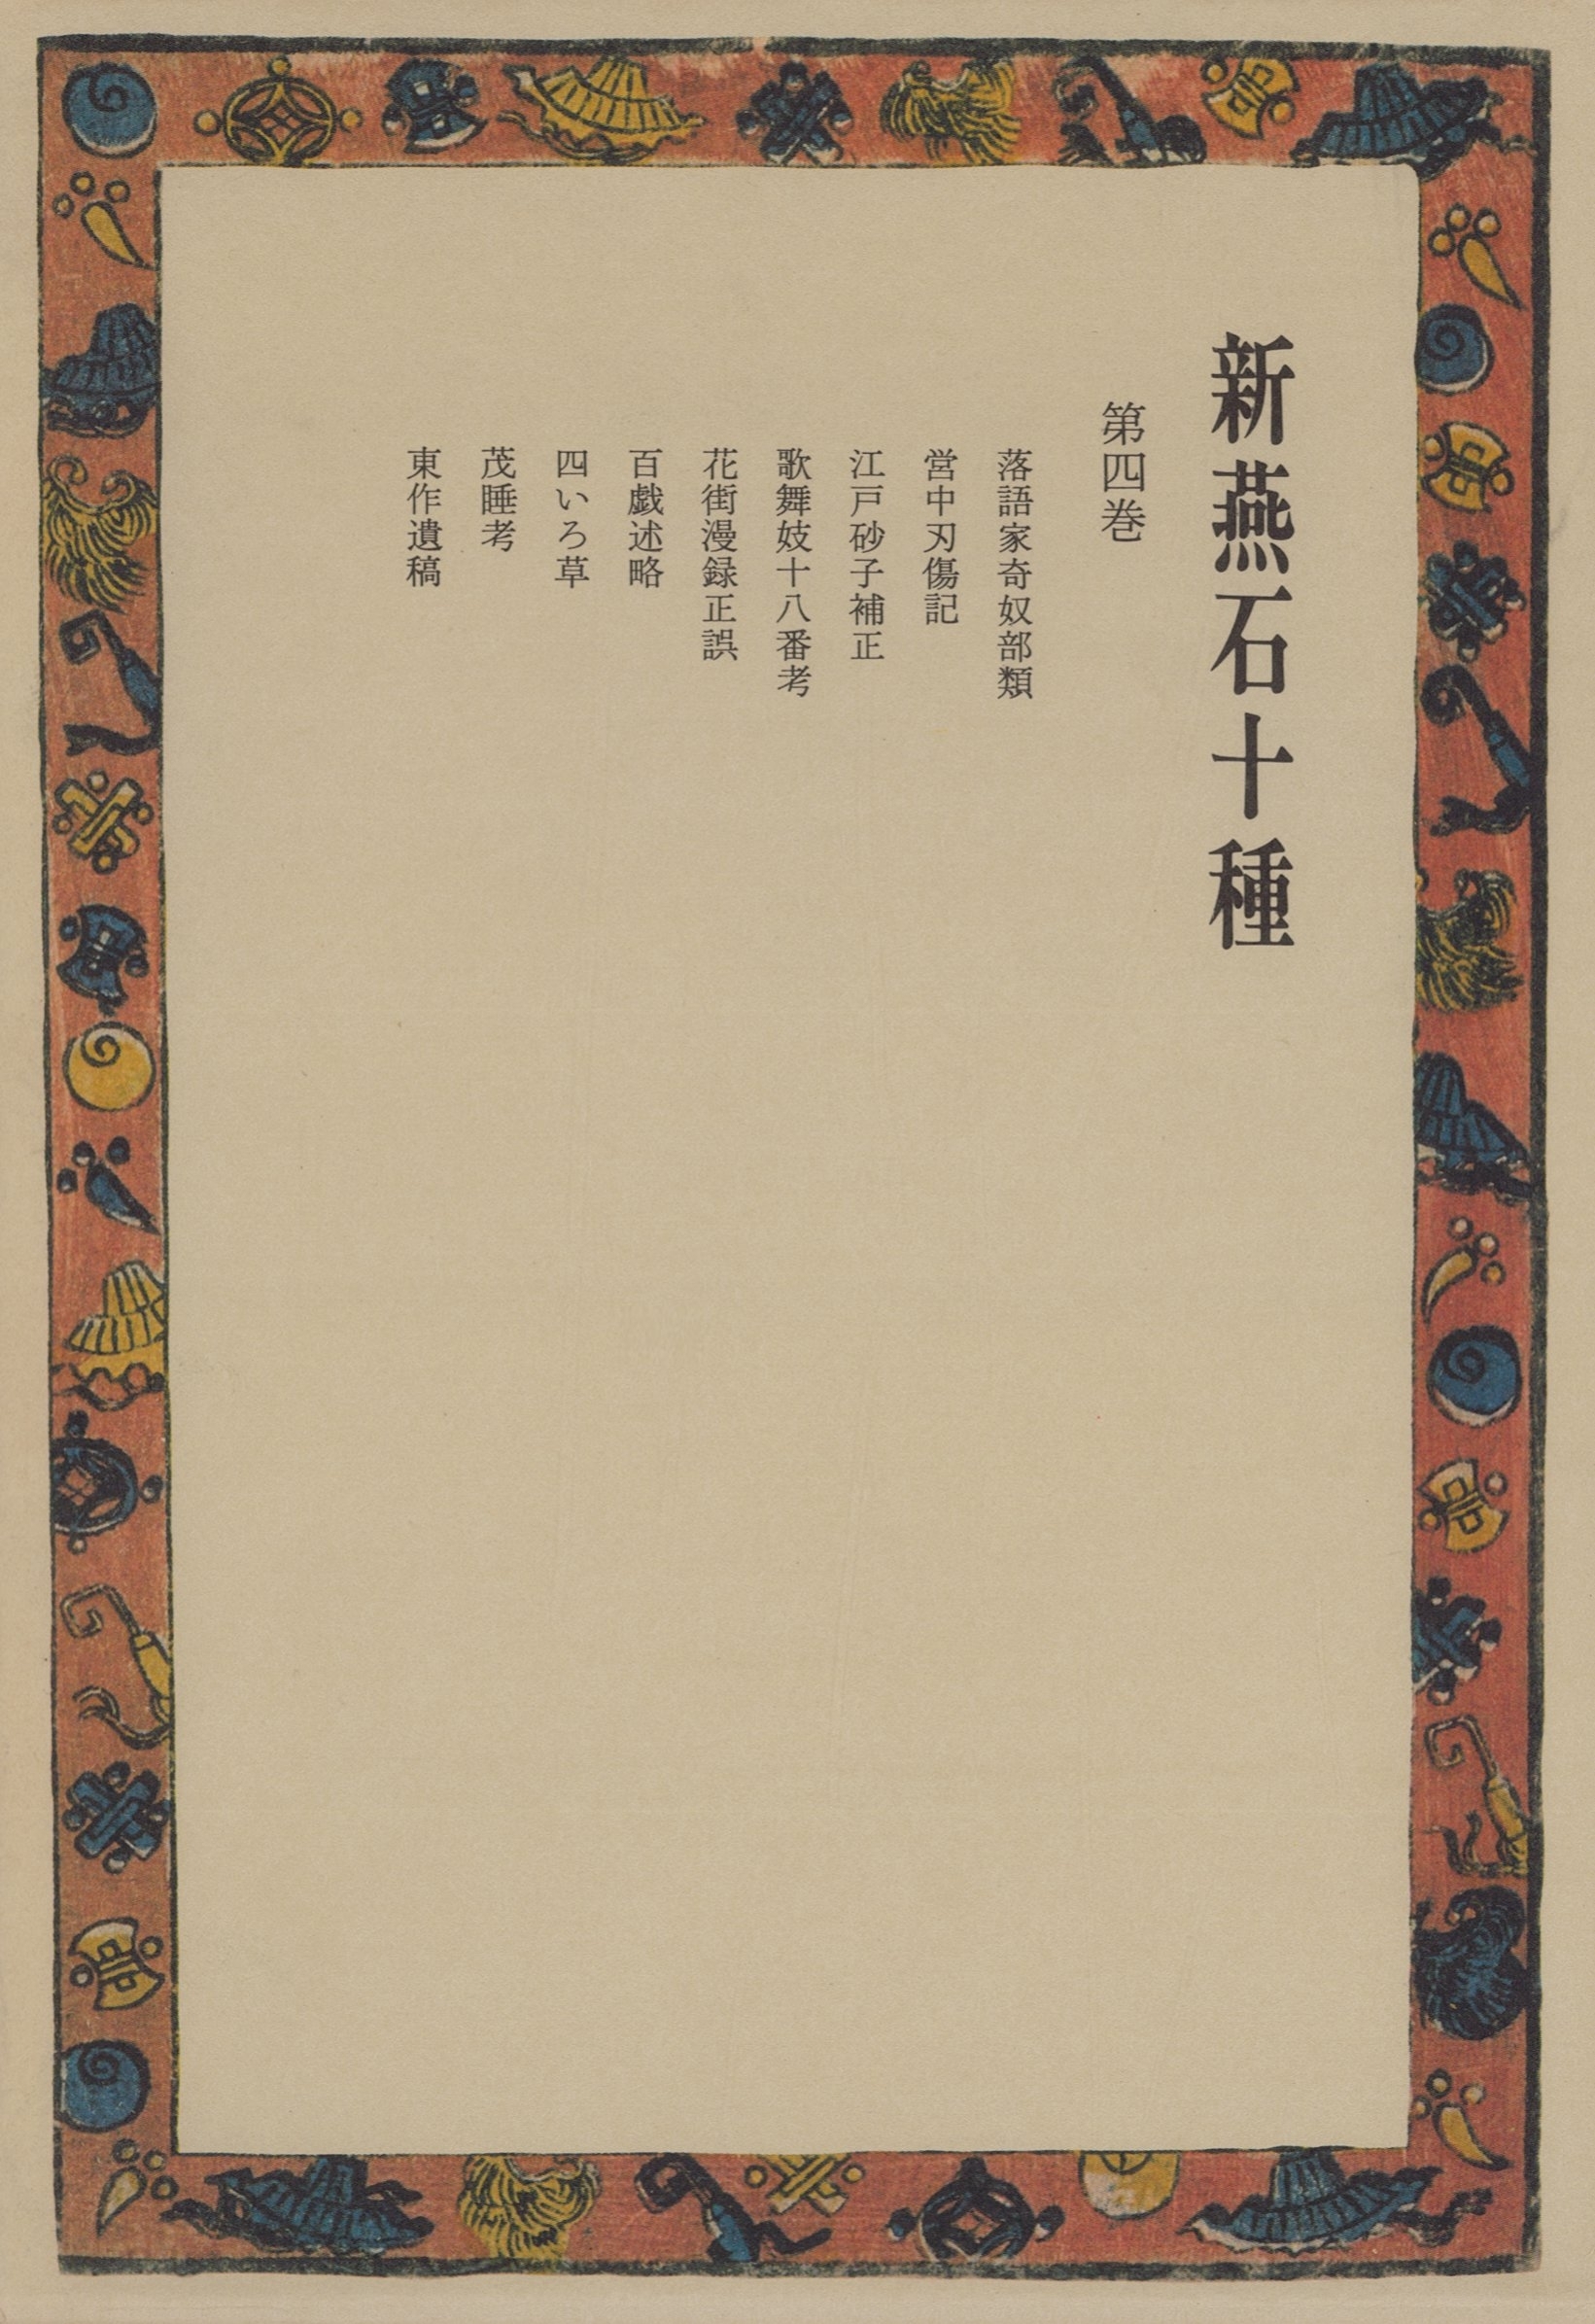 新燕石十種
第四巻
落語家奇奴部類
営中刃傷記
江戸砂子補正
歌舞妓十八番考
花街漫録正誤
百戯述略
四いろ草
茂睡考
東作遺稿